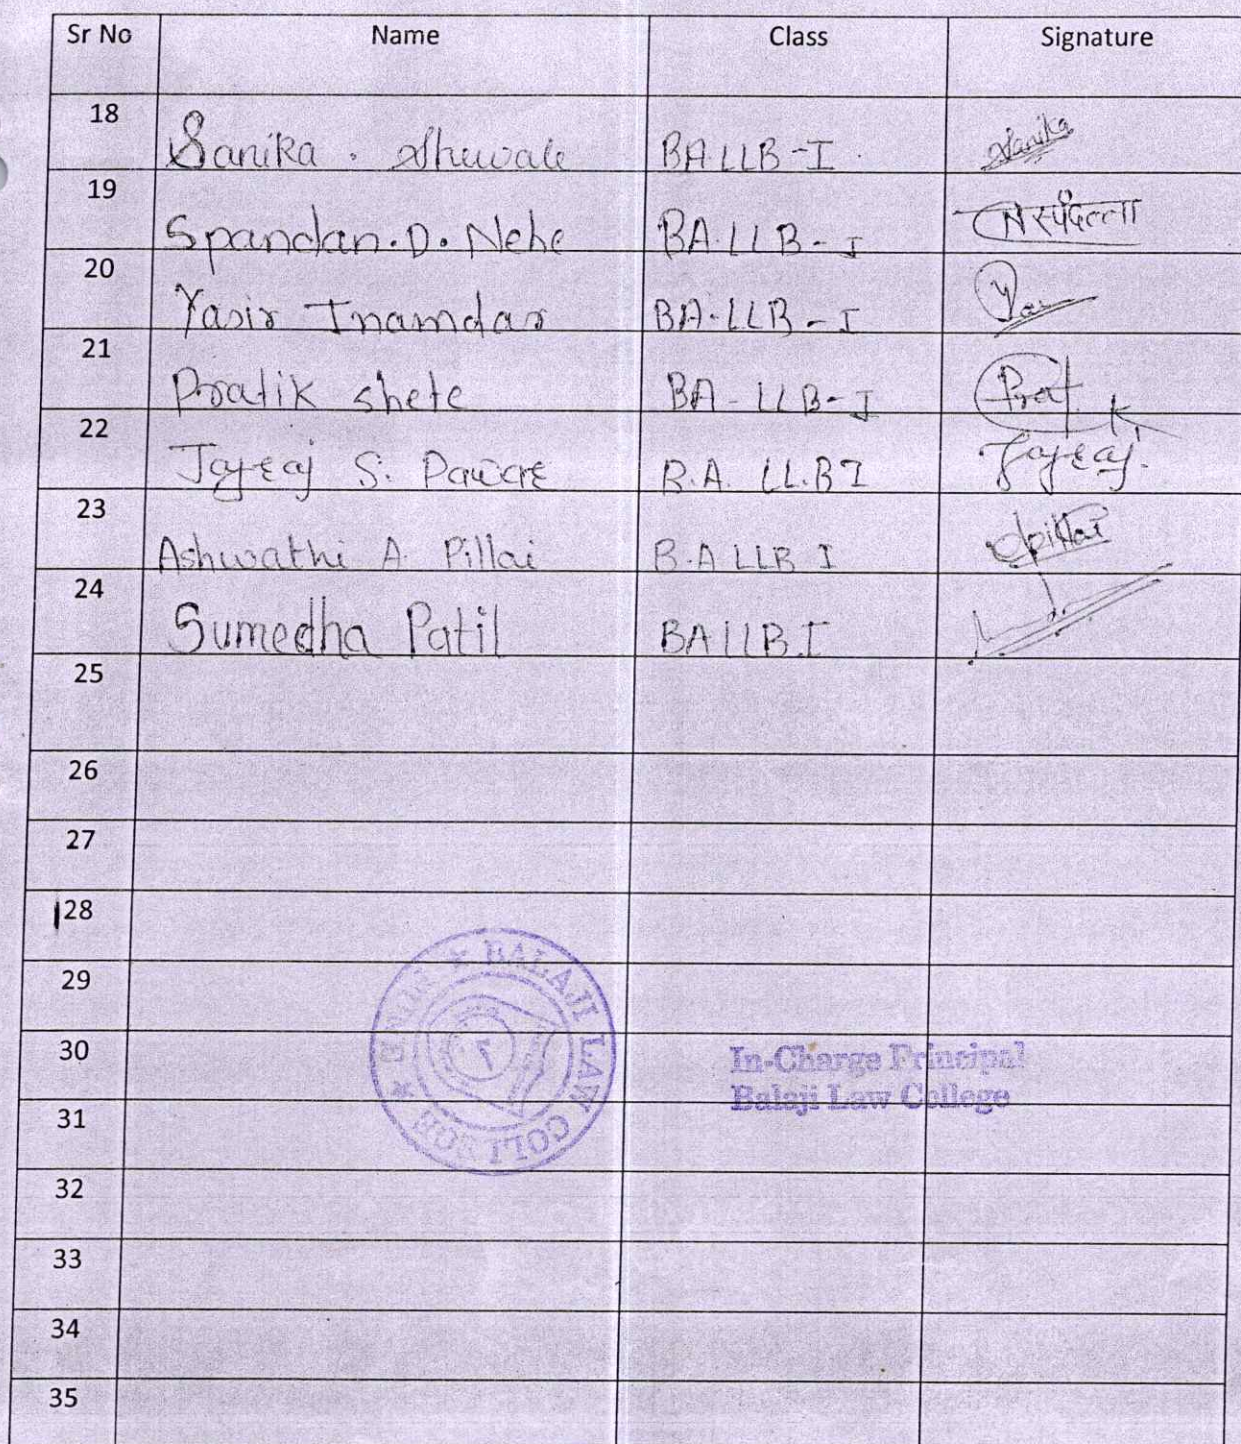 Sr No Name Class Signature
18 Sanika . Shuwale BA.LLB-I. Sanika
19 Spandan.D. Nehe BA.LLB-I
20 Yasir Inamdar BA-LLB-I Yas
21 Pratik shete BA-LLB-I Prat
22 Jayraj S. Pawar B.A. LL.B I Jayraj.
23 Ashwathi A. Pillai B.A LLB I Apillai
24 Sumedha Patil BA LLB I
25
26
27
28
29
30
31
32
33
34
35
BALAJI LAW COLLEGE
In-Charge Principal
Balaji Law College